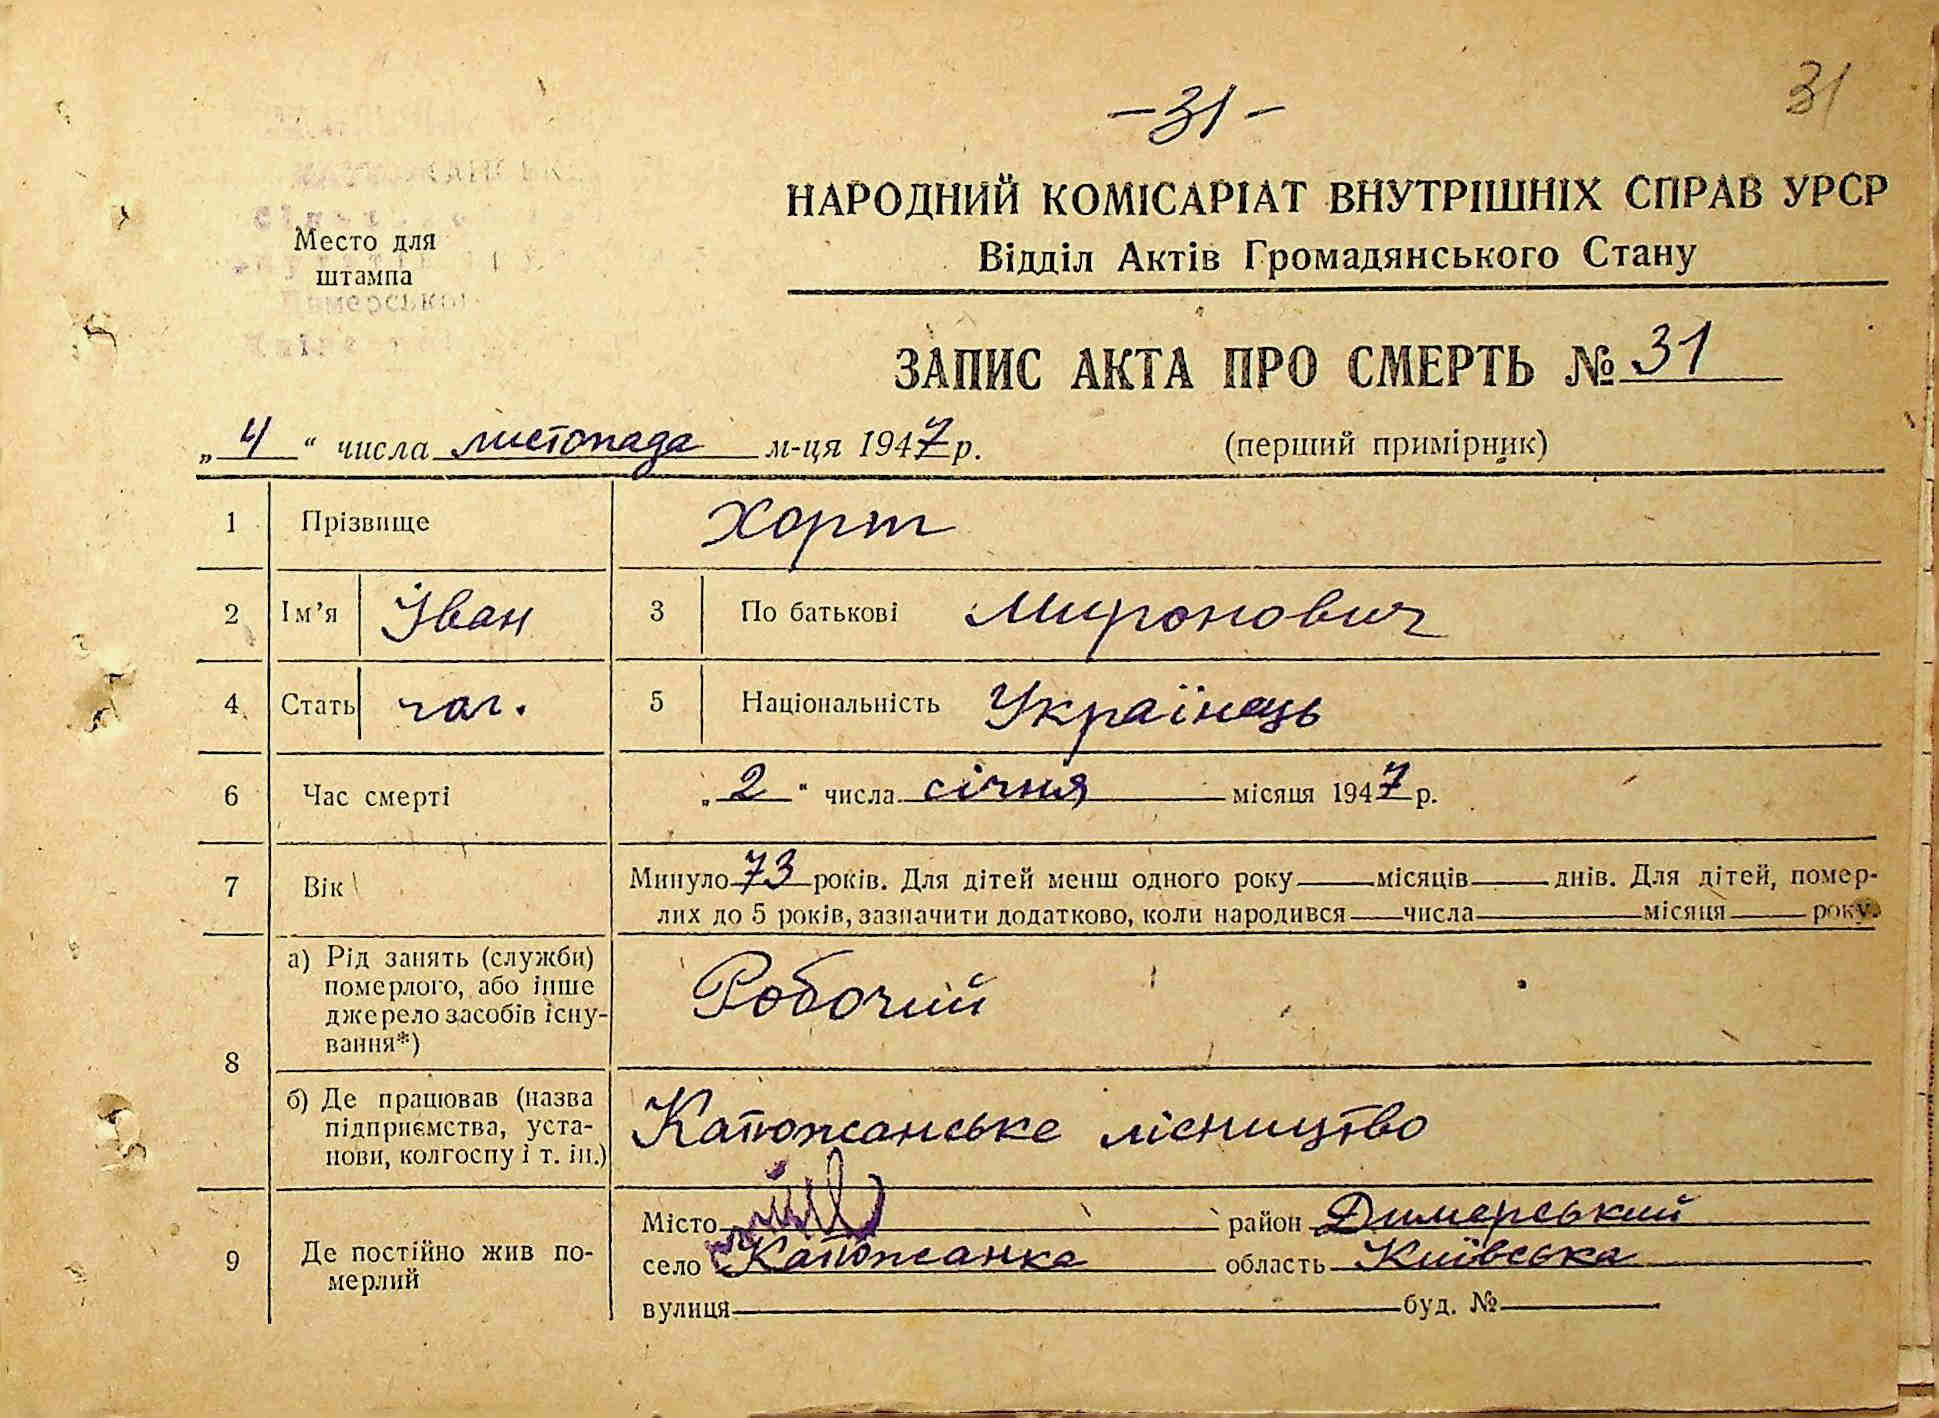 31
-31-
НАРОДНИЙ КОМІСАРІАТ ВНУТРІШНІХ СПРАВ УРСР
Відділ Актів Громадянського Стану
Место для
штампа
ЗАПИС АКТА ПРО СМЕРТЬ № 31
„4“ числа листопада м-ця 1947 р. (перший примірник)
1 Прізвище Хорт
2 Ім’я Іван 3 По батькові Миронович
4 Стать чол. 5 Національність Українець
6 Час смерті „2“ числа січня місяця 1947 р.
7 Вік Минуло 73 років. Для дітей менш одного року місяців днів. Для дітей, помер-
лих до 5 років, зазначити додатково, коли народився числа місяця року.
8 а) Рід занять (служби)
померлого, або інше
джерело засобів існу-
вання*)
Робочий
б) Де працював (назва
підприємства, уста-
нови, колгоспу і т. ін.)
Катюжанське лісництво
9 Де постійно жив по-
мерлий
Місто район Димерський
село Катюжанка область Київська
вулиця буд. №